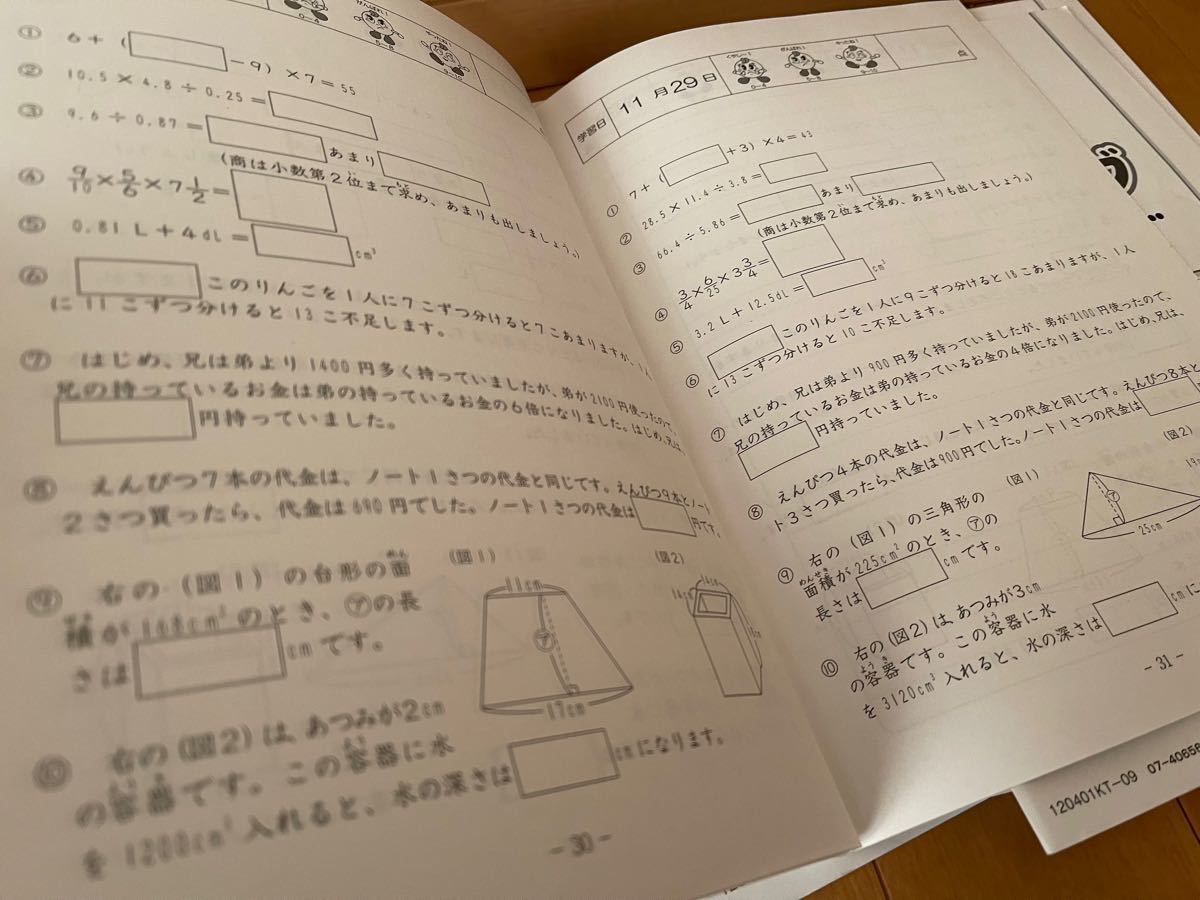 がんばれ！
やったね！
0-4
5-8
9-10
① 6＋（ －9）×7＝55
② 10.5×4.8÷0.25＝
③ 9.6÷0.87＝ あまり
（商は小数第2位まで求め、あまりも出しましょう。）
④ 9/10×5/6×7 1/2＝
⑤ 0.81L＋4dL＝ cm³
⑥ このりんごを1人に7こずつ分けると7こあまりますが、1人
に11こずつ分けると13こ不足します。
⑦ はじめ、兄は弟より1400円多く持っていましたが、弟が2100円使ったので、
兄の持っているお金は弟の持っているお金の6倍になりました。はじめ、兄は、
円持っていました。
⑧ えんぴつ7本の代金は、ノート1さつの代金と同じです。えんぴつ9本とノート
2さつ買ったら、代金は690円でした。ノート1さつの代金は 円です。
⑨ 右の（図1）の台形の面
積が168cm²のとき、㋐の長
さは cmです。
（図1）
11cm
㋐
17cm
（図2）
14cm
14cm
⑩ 右の（図2）は、あつみが2cm
の容器です。この容器に水
を1200cm³入れると、水の深さは cmになります。
－30－
学習日 11月29日
くやしー！
がんばれ！
やったね！
0-4
5-8
9-10
点
① 7＋（ ＋3）×4＝43
② 28.5×11.4÷3.8＝
③ 66.4÷5.86＝ あまり
（商は小数第2位まで求め、あまりも出しましょう。）
④ 3/4×6/25×3 3/4＝
⑤ 3.2L＋12.5dL＝ cm³
⑥ このりんごを1人に9こずつ分けると18こあまりますが、1人
に13こずつ分けると10こ不足します。
⑦ はじめ、兄は弟より900円多く持っていましたが、弟が2100円使ったので、
兄の持っているお金は弟の持っているお金の4倍になりました。はじめ、兄は、
円持っていました。
⑧ えんぴつ4本の代金は、ノート1さつの代金と同じです。えんぴつ8本と
ト3さつ買ったら、代金は900円でした。ノート1さつの代金は
⑨ 右の（図1）の三角形の
面積が225cm²のとき、㋐の
長さは cmです。
（図1）
㋐
25cm
（図2）
⑩ 右の（図2）は、あつみが3cm
の容器です。この容器に水
を3120cm³入れると、水の深さは cmに
－31－
120401KT-09 07-40656